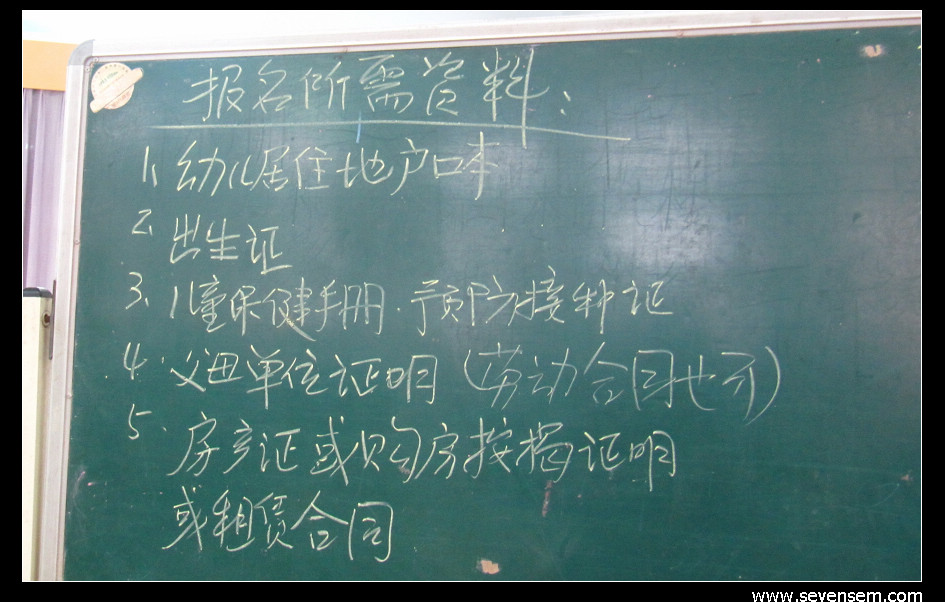 报名所需资料:
1、幼儿居住地户口本
2、出生证
3、儿童保健手册.预防接种证
4、父母单位证明(劳动合同也可)
5、房产证或购房按揭证明
或租赁合同
www.sevensem.com